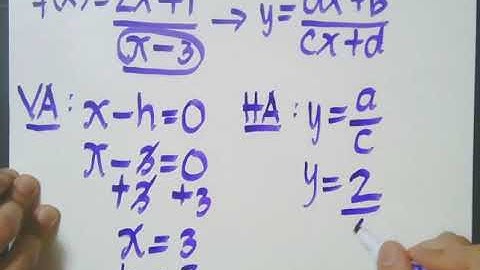 f(x) = 2x+1 / (x-3) → y = ax+b / cx+d
VA: x-h=0
x-3=0
+3 +3
x=3
HA: y = a/c
y = 2